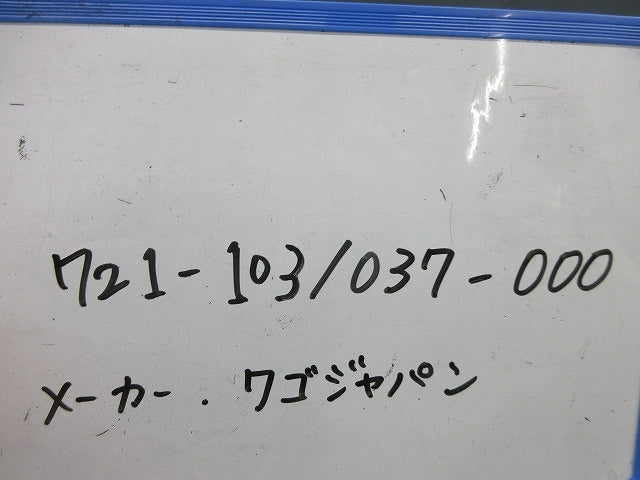 721-103/037-000
メーカー. ワゴジャパン